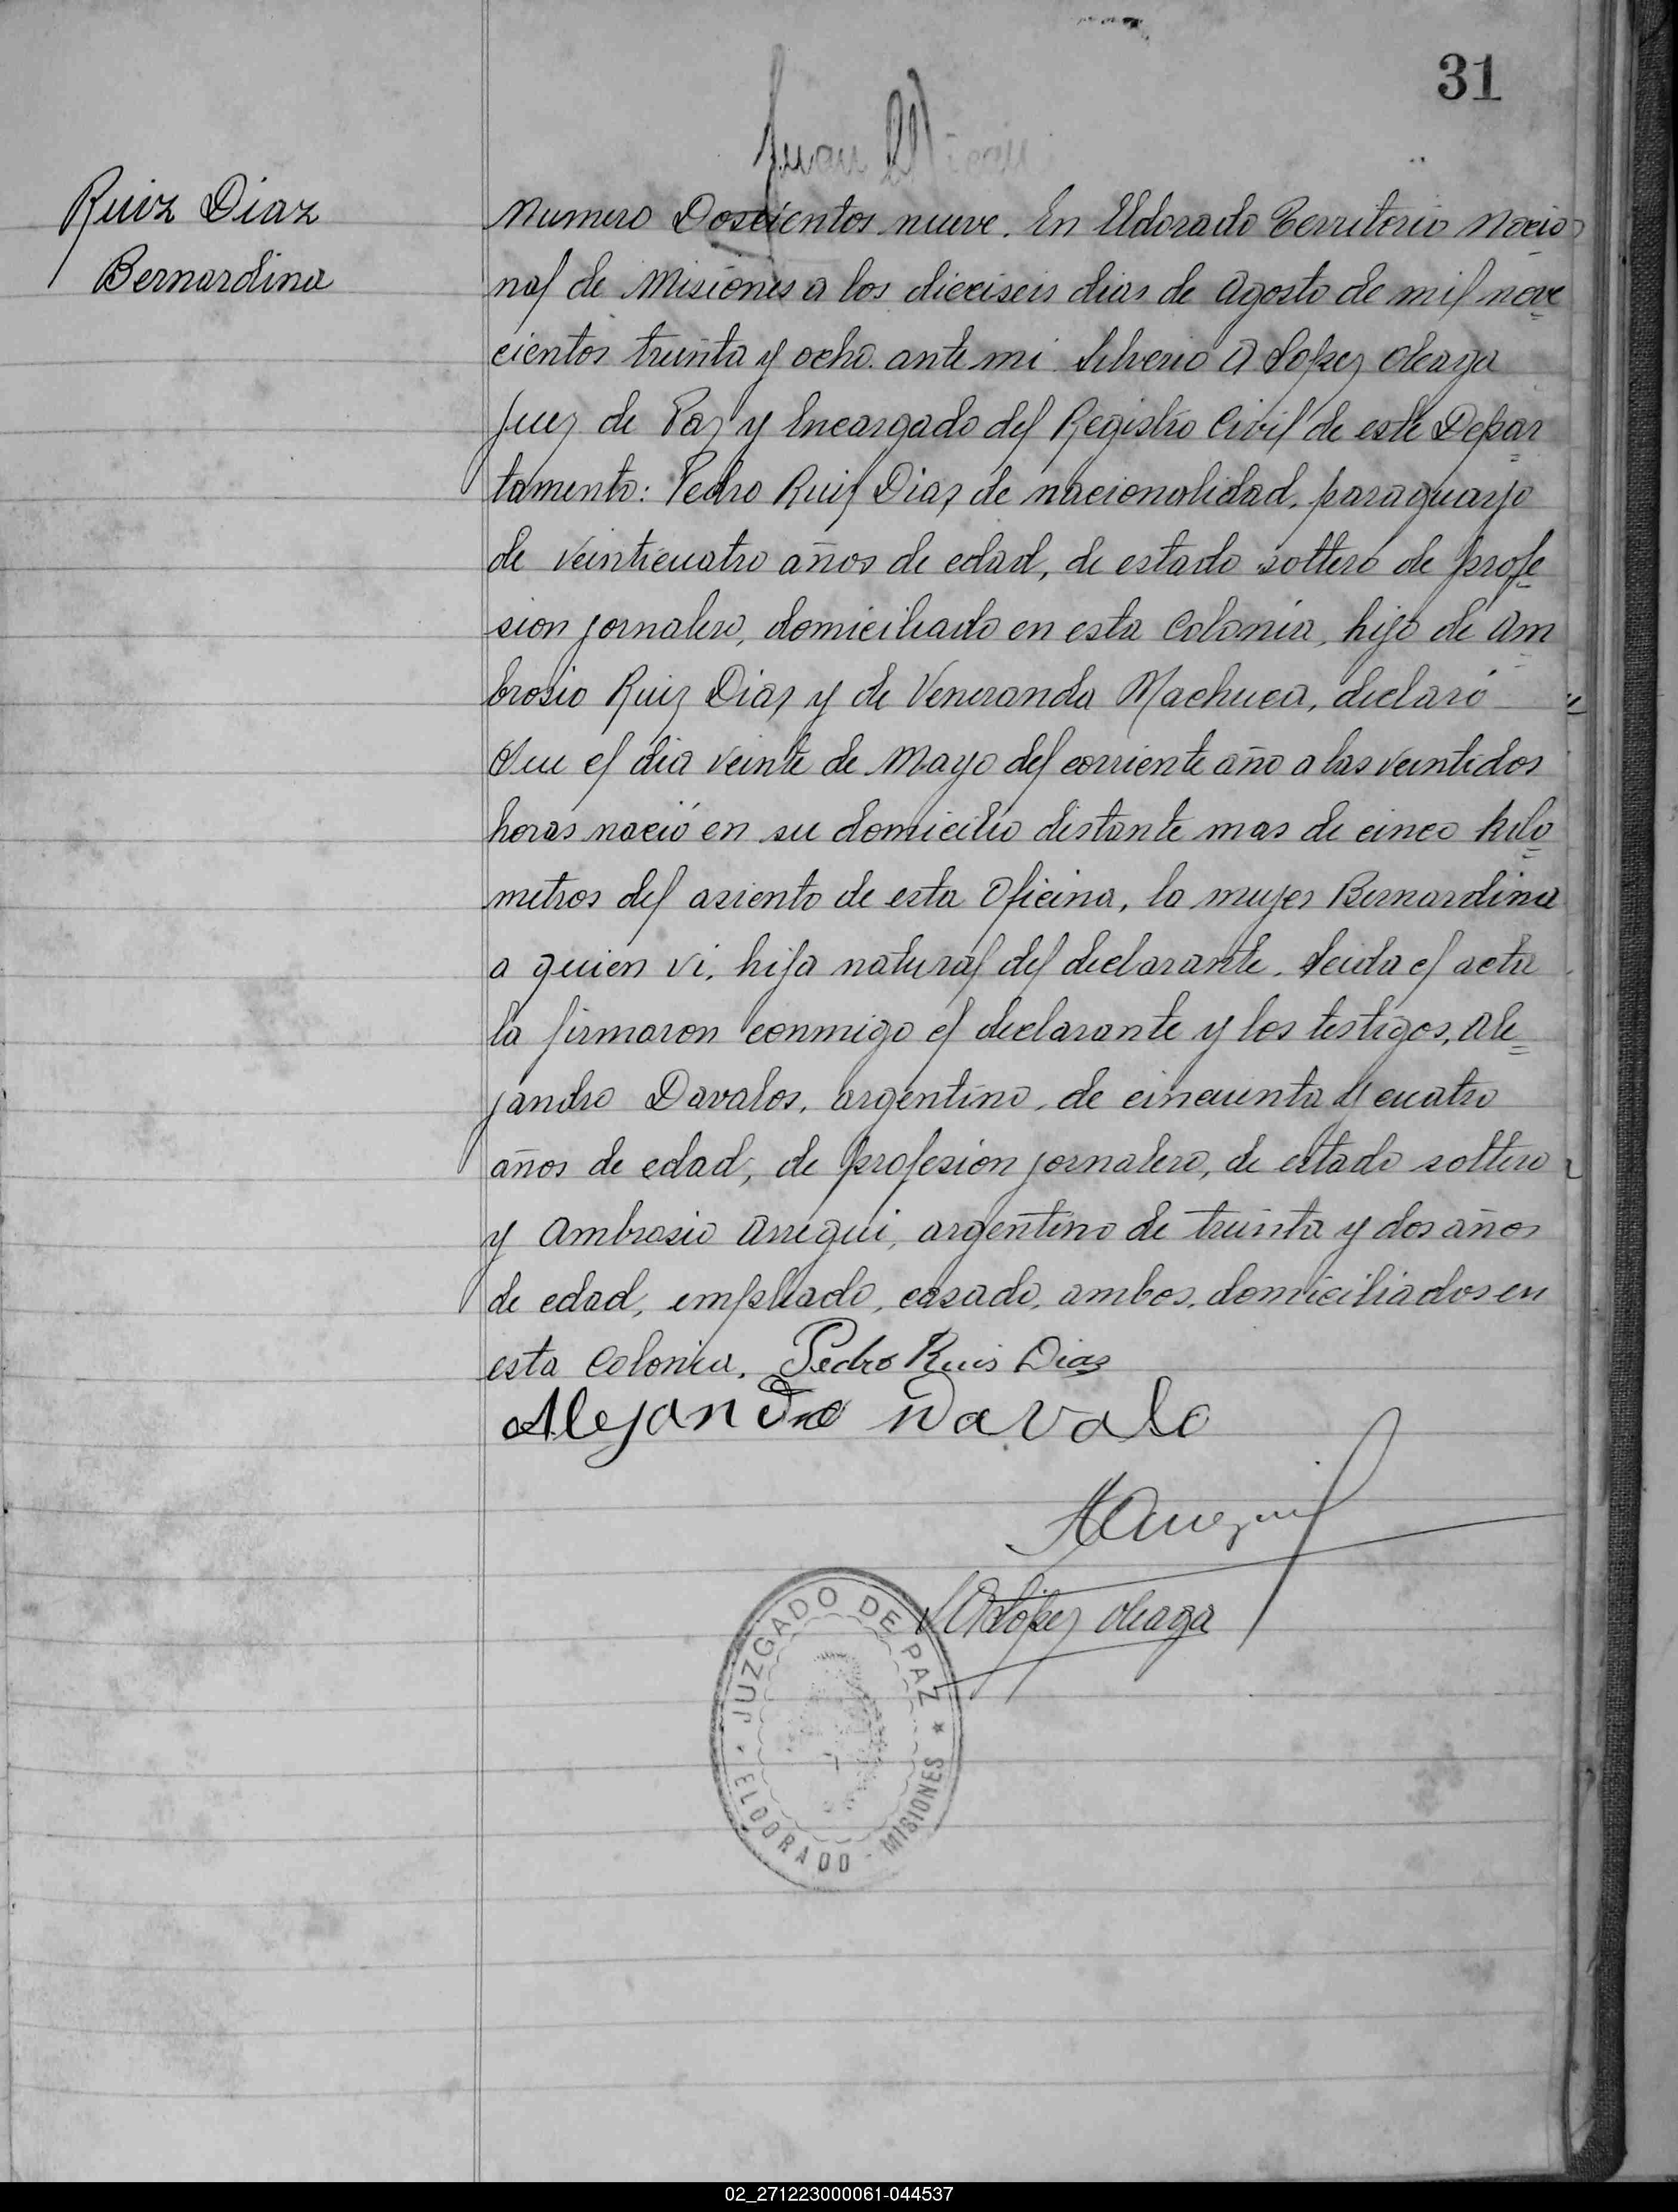 31
Juan
Ruiz Diaz
Bernardina
Numero Doscientos nueve. En Eldorado Territorio Nacio
nal de Misiones a los dieciseis dias de Agosto de mil nove
cientos treinta y ocho. ante mi Silverio A Lopez Oleaga
Juez de Paz y Encargado del Registro Civil de este Depar
tamento: Pedro Ruiz Diaz de nacionalidad, paraguayo
de veinticuatro años de edad, de estado soltero de profe
sion jornalero, domiciliado en esta Colonia, hijo de Am
brosio Ruiz Diaz y de Veneranda Machuca, declaró
Que el dia veinte de Mayo del corriente año a las veintidos
horas nació en su domicilio distante mas de cinco kilo
metros del asiento de esta Oficina, la mujer Bernardina
a quien vi, hija natural del declarante. Leida el acta
la firmaron conmigo el declarante y los testigos, Ale
jandro Davalos, argentino, de cincuenta y cuatro
años de edad, de profesion jornalero, de estado soltero
y Ambrosio Arregui, argentino de treinta y dos años
de edad, empleado, casado, ambos, domiciliados en
esta Colonia. Pedro Ruis Dias
Alejandro Davalo
A Arregui
S A Lopez Oleaga
JUZGADO DE PAZ
ELDORADO - MISIONES
02_271223000061-044537